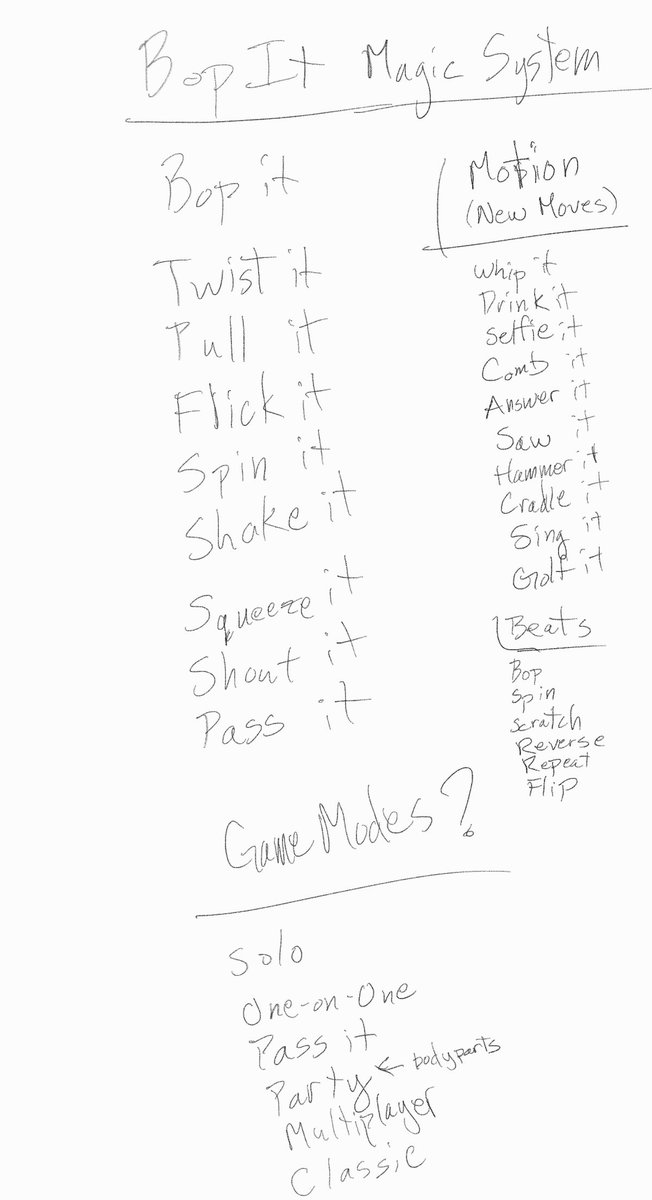 Bop It Magic System
Bop it
Twist it
Pull it
Flick it
Spin it
Shake it
Squeeze it
Shout it
Pass it
Motion
(New Moves)
Whip it
Drink it
Selfie it
Comb it
Answer it
Saw it
Hammer it
Cradle it
Sing it
Golf it
Beats
Bop
Spin
Scratch
Reverse
Repeat
Flip
Game Modes?
Solo
One-on-One
Pass it
Party ← bodyparts
Multiplayer
Classic